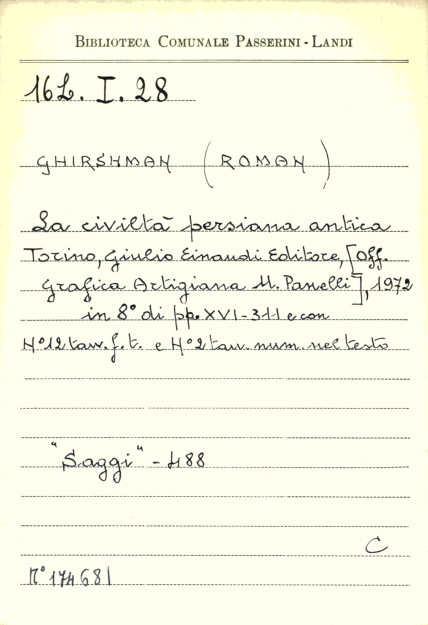 BIBLIOTECA COMUNALE PASSERINI - LANDI
16L. I. 28
GHIRSHMAN (ROMAN)
La civiltà persiana antica
Torino, Giulio Einaudi Editore, [Off.
Grafica Artigiana M. Panelli], 1972
in 8° di pp. XVI-311 e con
N° 12 tav. f. t. e N° 2 tav. num. nel testo
"Saggi" - 488
C
N° 174681